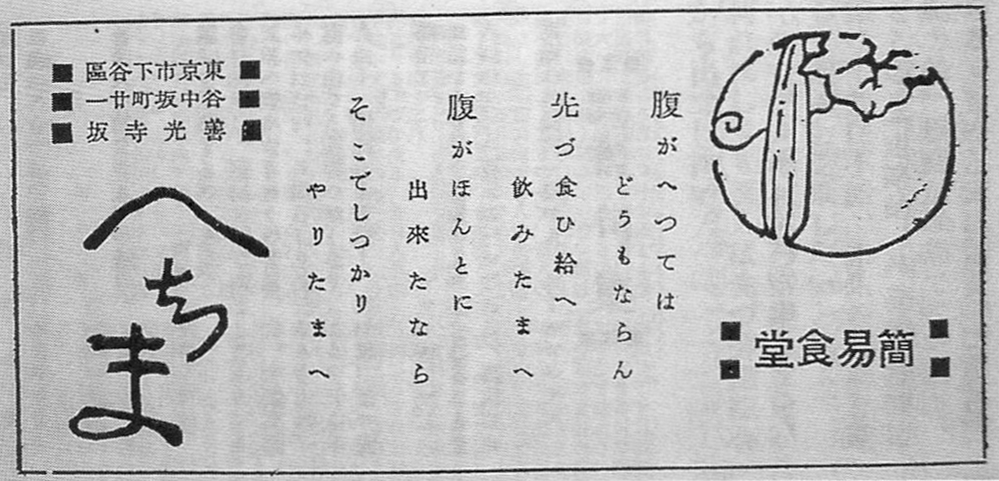 簡易食堂
腹がへつては
どうもならん
先づ食ひ給へ
飲みたまへ
腹がほんとに
出來たなら
そこでしつかり
やりたまへ
東京市下谷區
谷中坂町廿一
善光寺坂
へちま